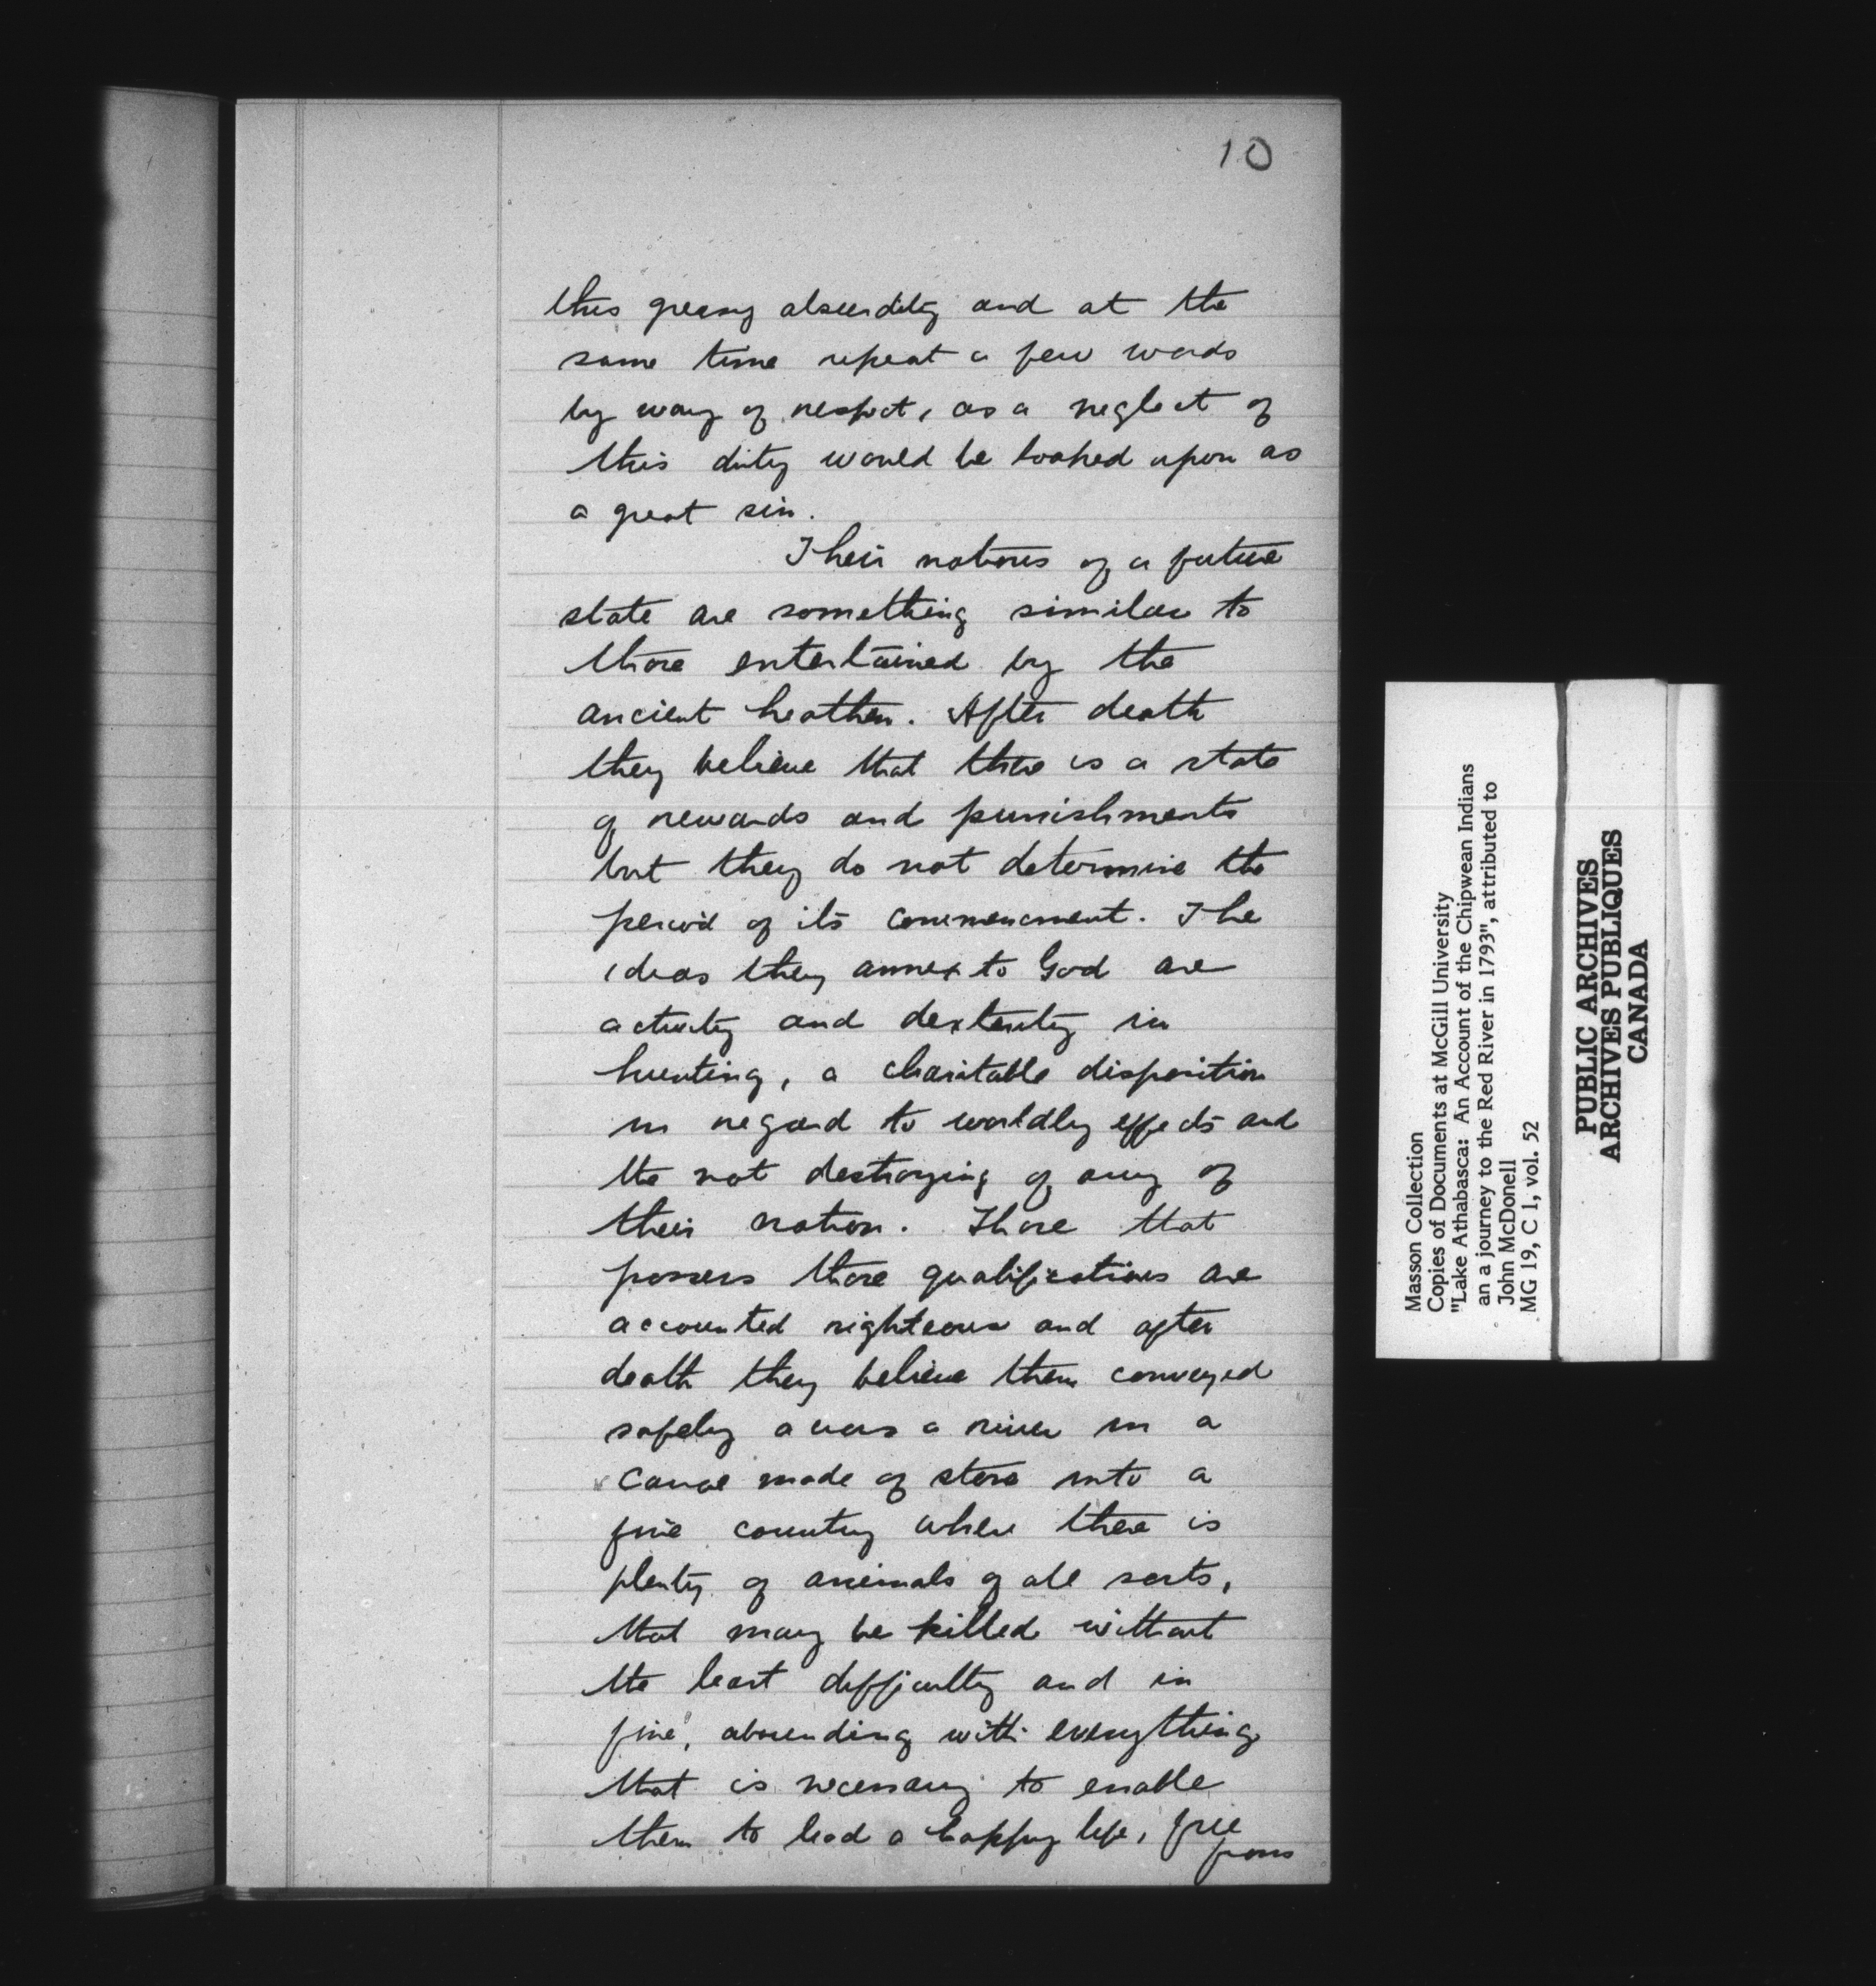 10
this greasy absurdity and at the
same time repeat a few words
by way of respect, as a neglect of
this duty would be looked upon as
a great sin.
Their notions of a future
state are something similar to
those entertained by the
ancient heathen. After death
they believe that there is a state
of rewards and punishments
but they do not determine the
period of its commencment. The
ideas they annex to God are
activity and dexterity in
hunting, a charitable disposition
in regard to worldly effects and
the not destroying of any of
their nation. Those that
possess those qualifications are
accounted righteous and after
death they believe them conveyed
safely across a river in a
canoe made of stone into a
fine country where there is
plenty of animals of all sorts,
that may be killed without
the least difficulty and in
fine, abounding with everything
that is necessary to enable
them to lead a happy life, free
from
Masson Collection
Copies of Documents at McGill University
"Lake Athabasca: An Account of the Chipwean Indians
an a journey to the Red River in 1793", attributed to
John McDonell
MG 19, C 1, vol. 52
PUBLIC ARCHIVES
ARCHIVES PUBLIQUES
CANADA